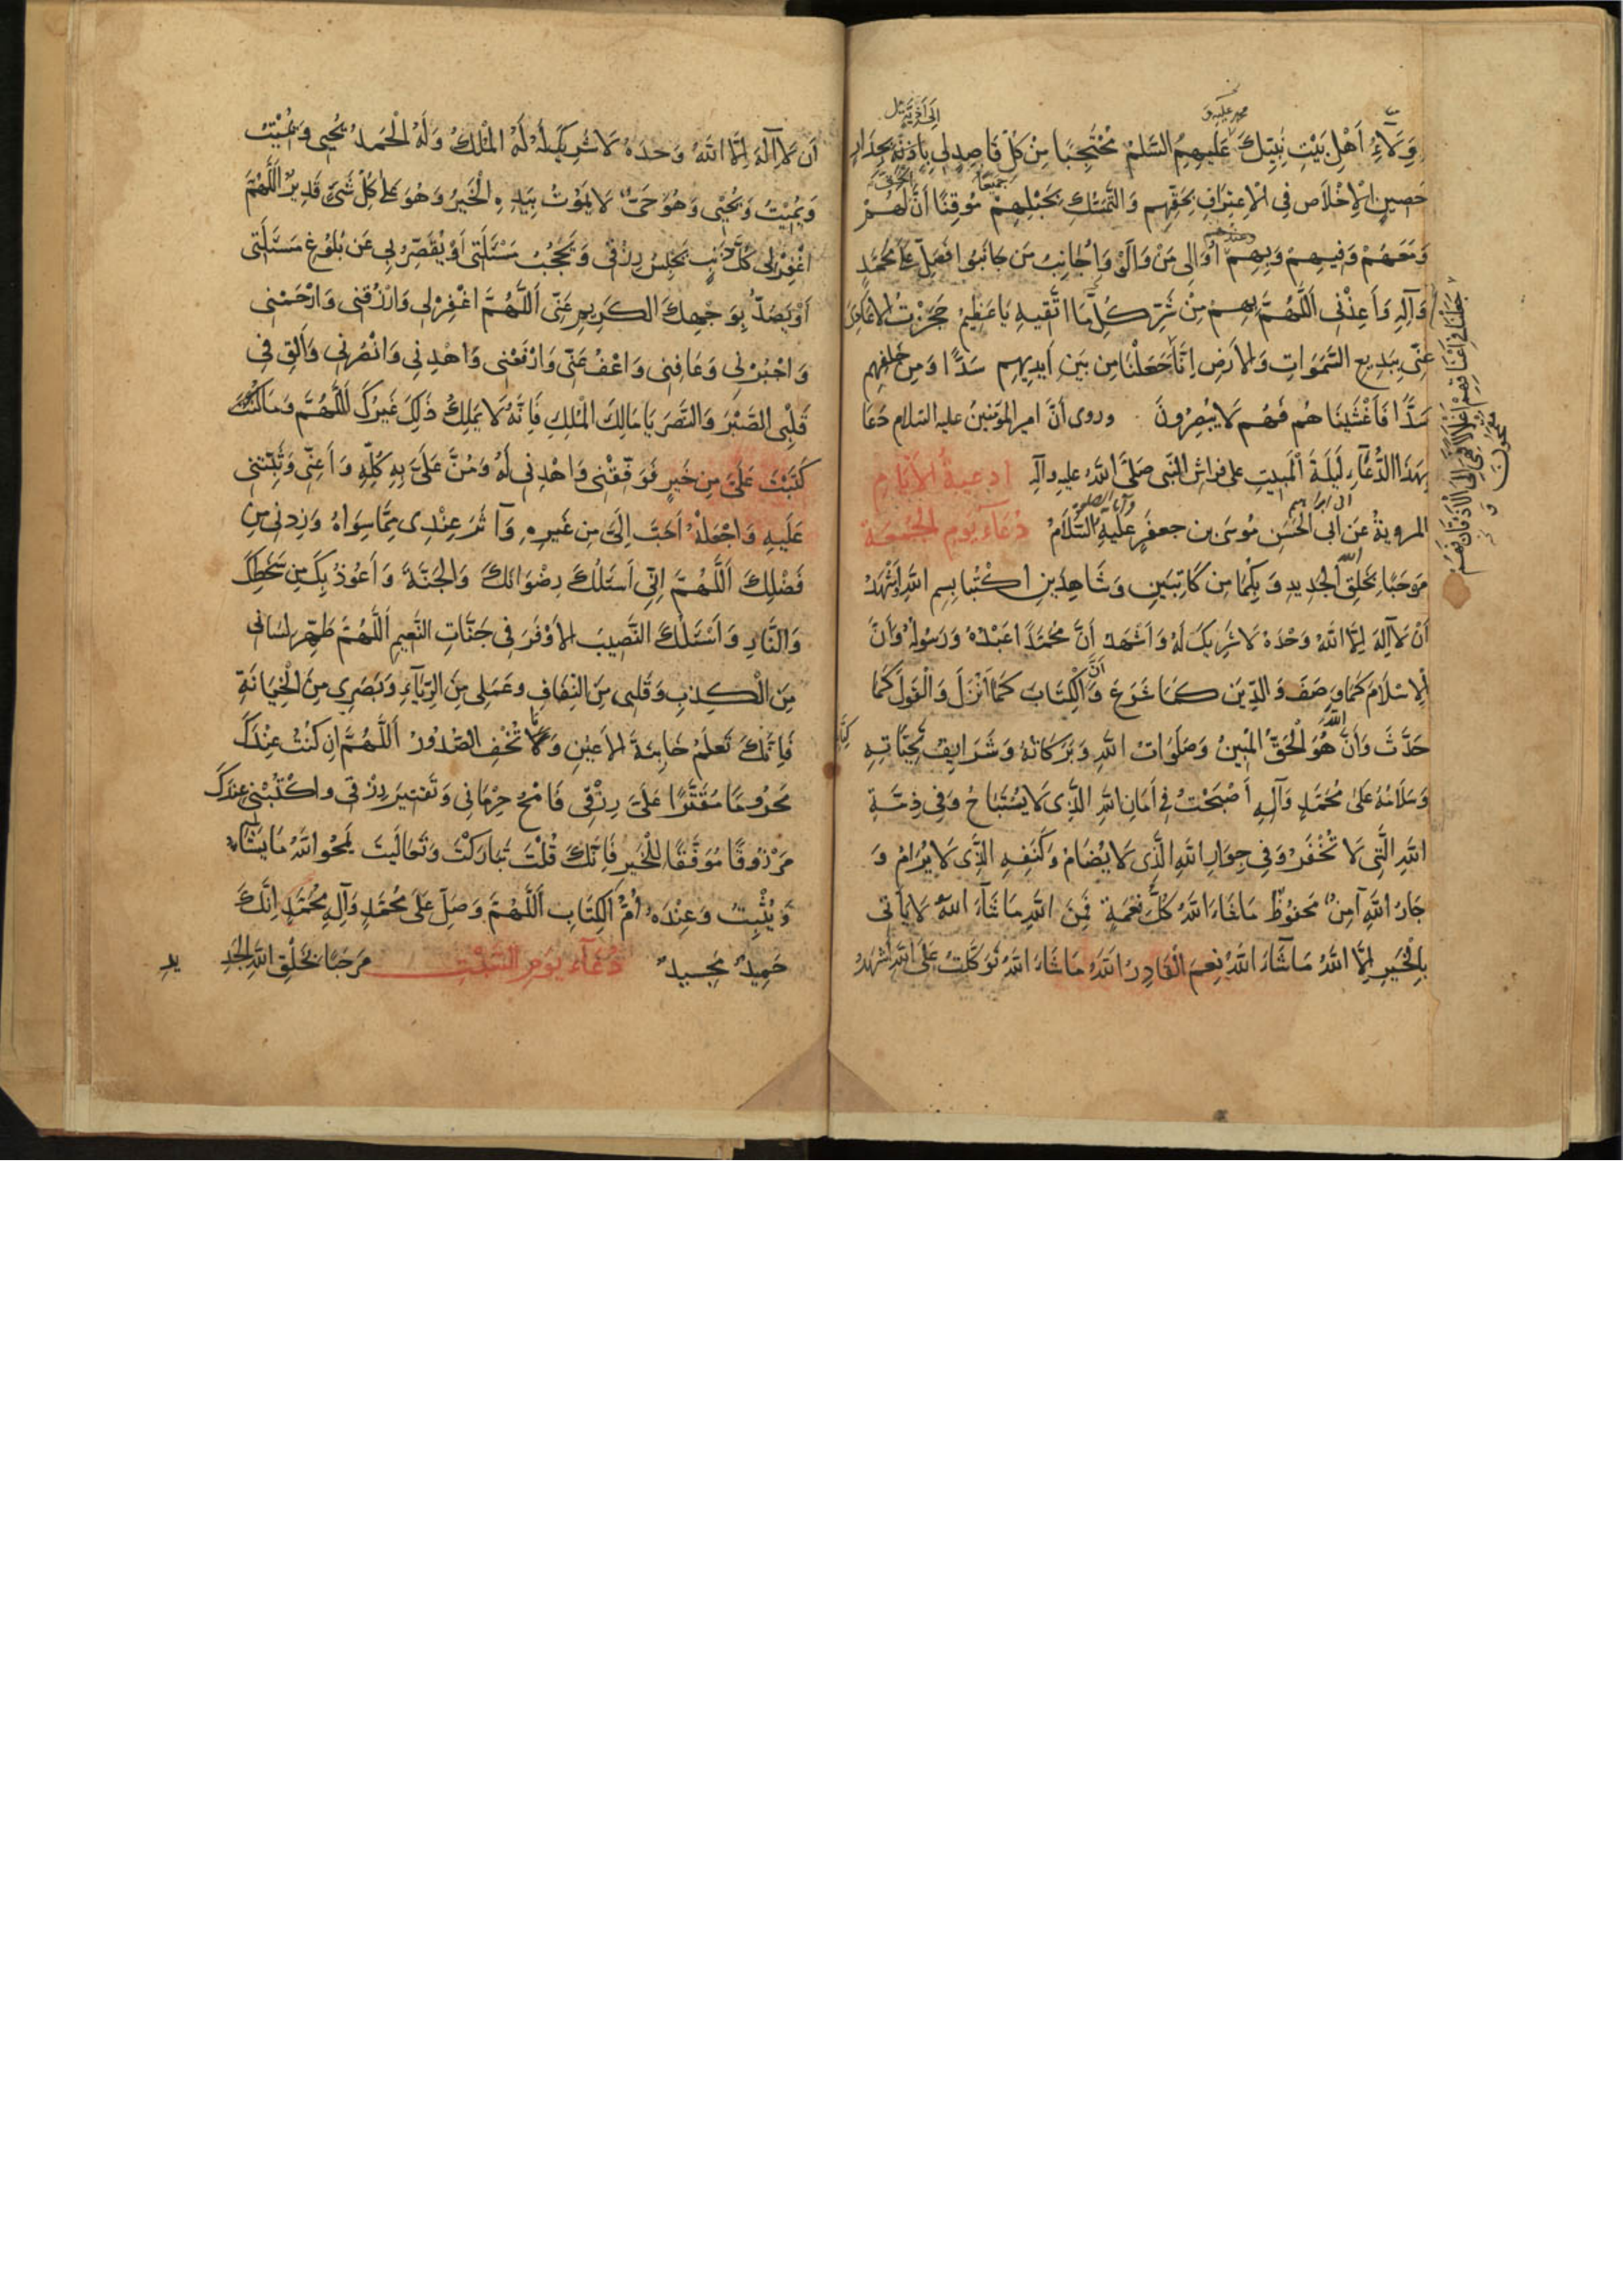 وَلَاءِ أَهْلِ بَيْتِ نَبِيِّكَ عَلَيهِمُ السَّلَمُ مُحْتَجِبًا مِنْ كُلِّ قَاصِدٍ لِي بِأَذِيَّةٍ بِجِدَارٍ
حَصِينِ الْإِخْلَاصِ فِي الْاِعْتِرَافِ بِحَقِّهِم وَالتَّمَسُّكِ بِحَبْلِهِمْ مُوقِنًا أَنَّ الْحَقَّ لَهُمْ
وَمَعَهُمْ وَفِيهِمْ وَبِهِمْ أُوَالِى مَنْ وَالَوْا وَأُجَانِبُ مَن جَانَبُوا فَصَلِّ عَلَى مُحَمَّدٍ
وَآلِهِ وَأَعِذْنِى اَللَّهُمَّ بِهِمْ مِنْ شَرِّ كُلِّ مَا اتَّقِيهِ يَا عَظِيمُ حَجَزْتُ الْأَعَادِىَ
عَنِّى بِبَدِيعِ السَّمَوَاتِ وَالْأَرْضِ اِنَّا جَعَلْنَا مِن بَينِ أَيدِيهِم سَدًّا وَمِن خَلفِهِم
سَدًّا فَأَغْشَينَاهُم فَهُم لَا يُبْصِرُونَ وروى أنَّ امير المؤمنينَ عليه السلام دَعَا
بِهَذَا الدُّعَآءِ لَيلَةَ الْمَبِيتِ على فراشِ النبى صَلَّى اللَّهُ عليهِ وآلِهِ ادعِيةُ الْأَيَّامِ
المرويةُ عَن أَبى الحَسَنِ مُوسَى بن جعفَرٍ عَلَيهِ السَّلَامُ دُعَآءُ يَومِ الجُمعَةِ
مَرحَبًا بِخَلقِ اللهِ الْجَدِيدِ وَبِكُمَا مِن كَاتِبَينِ وَشَاهِدَينِ اُكْتُبَا بِسمِ اللَّهِ أَشْهَدُ
أَنْ لَا إِلَهَ إِلَّا اللَّهُ وَحْدَهُ لَا شَرِيكَ لَهُ وَأَشهَدُ أَنَّ مُحَمَّدًا عَبْدُهُ وَرَسُولُهُ وَأَنَّ
الْإِسْلَامَ كَمَا وَصَفَ وَالدِّينَ كَمَا شَرَعَ وَأَنَّ الْكِتَابَ كَمَا أَنْزَلَ وَالْقَولَ كَمَا
حَدَّثَ وَأَنَّ اللَّهَ هُوَ الْحَقُّ الْمُبِينُ وَصَلَوَاتُ اللَّهِ وَبَرَكَاتُهُ وَشَرَايِفُ تَحِيَّاتِهِ
وَسَلَامُهُ عَلَى مُحَمَّدٍ وَآلِهِ أَصْبَحْتُ فِى أَمَانِ اللَّهِ الَّذِى لَا يُسْتَبَاحُ وَفِى ذِمَّةِ
اللَّهِ الَّتِى لَا تُخْفَرُ وَفِى جِوَارِ اللَّهِ الَّذِى لَا يُضَامُ وَكَنَفِهِ الَّذِى لَا يُرَامُ وَ
جَارُ اللَّهِ آمِنٌ مَحفُوظٌ مَا شَاءَ اللَّهُ كُلُّ نِعْمَةٍ فَمِنَ اللَّهِ مَا شَآءَ اللَّهُ لَا يَأتِى
بِالْخَيرِ إِلَّا اللَّهُ مَا شَآءَ اللَّهُ نِعمَ الْقَادِرُ اللَّهُ مَا شَاءَ اللَّهُ تَوَكَّلتُ عَلَى اللَّهِ اشهَدُ
أَن لَا اِلَهَ اِلَّا اللَّهُ وَحدَهُ لَا شَرِيكَ لَهُ لَهُ الْمُلكُ وَلَهُ الْحَمدُ يُحيِى وَيُمِيْتُ
وَيُمِيْتُ وَيُحْيِى وَهُوَ حَىٌّ لَا يَمُوْتُ بِيَدِهِ الْخَيرُ وَهُوَ عَلَى كُلِّ شَىءٍ قَدِيرٌ اَللَّهُمَّ
اغْفِرْ لِى كُلَّ ذَنبٍ يَحبِسُ رِزْقِى وَيَحجُبُ مَسْئَلَتِى أَوْ يُقَصِّرُ بِى عَن بُلُوْغِ مَسْئَلَتِى
أَوْ يَصُدُّ بِوَجْهِكَ الكَرِيمِ عَنِّى اَللَّهُمَّ اغْفِرْ لِى وَارْزُقنِى وَارْحَمْنِى
وَاجْبُرْنِى وَعَافِنِى وَاعْفُ عَنِّى وَارْفَعْنِى وَاهْدِنِى وَانْصُرنِى وَأَلقِ فِى
قَلْبِى الصَّبْرَ وَالنَّصرَ يَا مَالِكَ الْمُلكِ فَاِنَّهُ لَا يَملِكُ ذَلِكَ غَيرُكَ اَللَّهُمَّ وَمَا
كَتَبْتَ عَلَىَّ مِن خَيرٍ فَوَفِّقْنِى وَاهْدِنِى لَهُ وَمُنَّ عَلَىَّ بِهِ كُلِّهِ وَأَعِنِّى وَثَبِّتنِى
عَلَيهِ وَاجْعَلْهُ اَحَبَّ اِلَىَّ مِن غَيرِهِ وَآثَرَ عِنْدِى مِمَّا سِوَاهُ وَزِدنِى مِن
فَضْلِكَ اَللَّهُمَّ اِنِّى اَسئَلُكَ رِضْوَانَكَ وَالجَنَّةَ وَأَعُوذُ بِكَ مِن سَخَطِكَ
وَالنَّارِ وَأَسْئَلُكَ النَّصِيبَ الْأَوْفَرَ فِى جَنَّاتِ النَّعِيمِ اَللَّهُمَّ طَهِّر لِسَانِى
مِنَ الْكَذِبِ وَقَلبِى مِنَ النِفَاقِ وعَمَلِى مِنَ الرِّيَآءِ وَبَصَرِى مِنَ الْخِيَانَةِ
فَاِنَّكَ تَعلَمُ خَايِنَةَ الْأَعيُنِ وَمَا تُخْفِى الصُّدُورُ اَللَّهُمَّ اِن كُنْتُ عِنْدَكَ
مَحرُومًا مُقَتَّرًا عَلَىَّ رِزْقِى فَامْحُ حِرْمَانِى وَتَقتِيرَ رِزْقِى واكتُبْنِى عِندَكَ
مَرْزُوقًا مُوَفَّقًا لِلْخَيرِ فَاِنَّكَ قُلْتَ تَبَارَكْتَ وَتَعَالَيتَ يَمحُو اللَّهُ مَا يَشَآءُ
وَيُثْبِتُ وَعِنْدَهُ اُمُّ الْكِتَابِ اَللَّهُمَّ وَصَلِّ عَلَى مُحَمَّدٍ وَآلِ مُحَمَّدٍ اِنَّكَ
حَمِيدٌ مَجِيدٌ دُعَآءُ يَومِ السَّبْتِ مَرحَبًا بِخَلْقِ اللَّهِ الجَدِ
يدِ